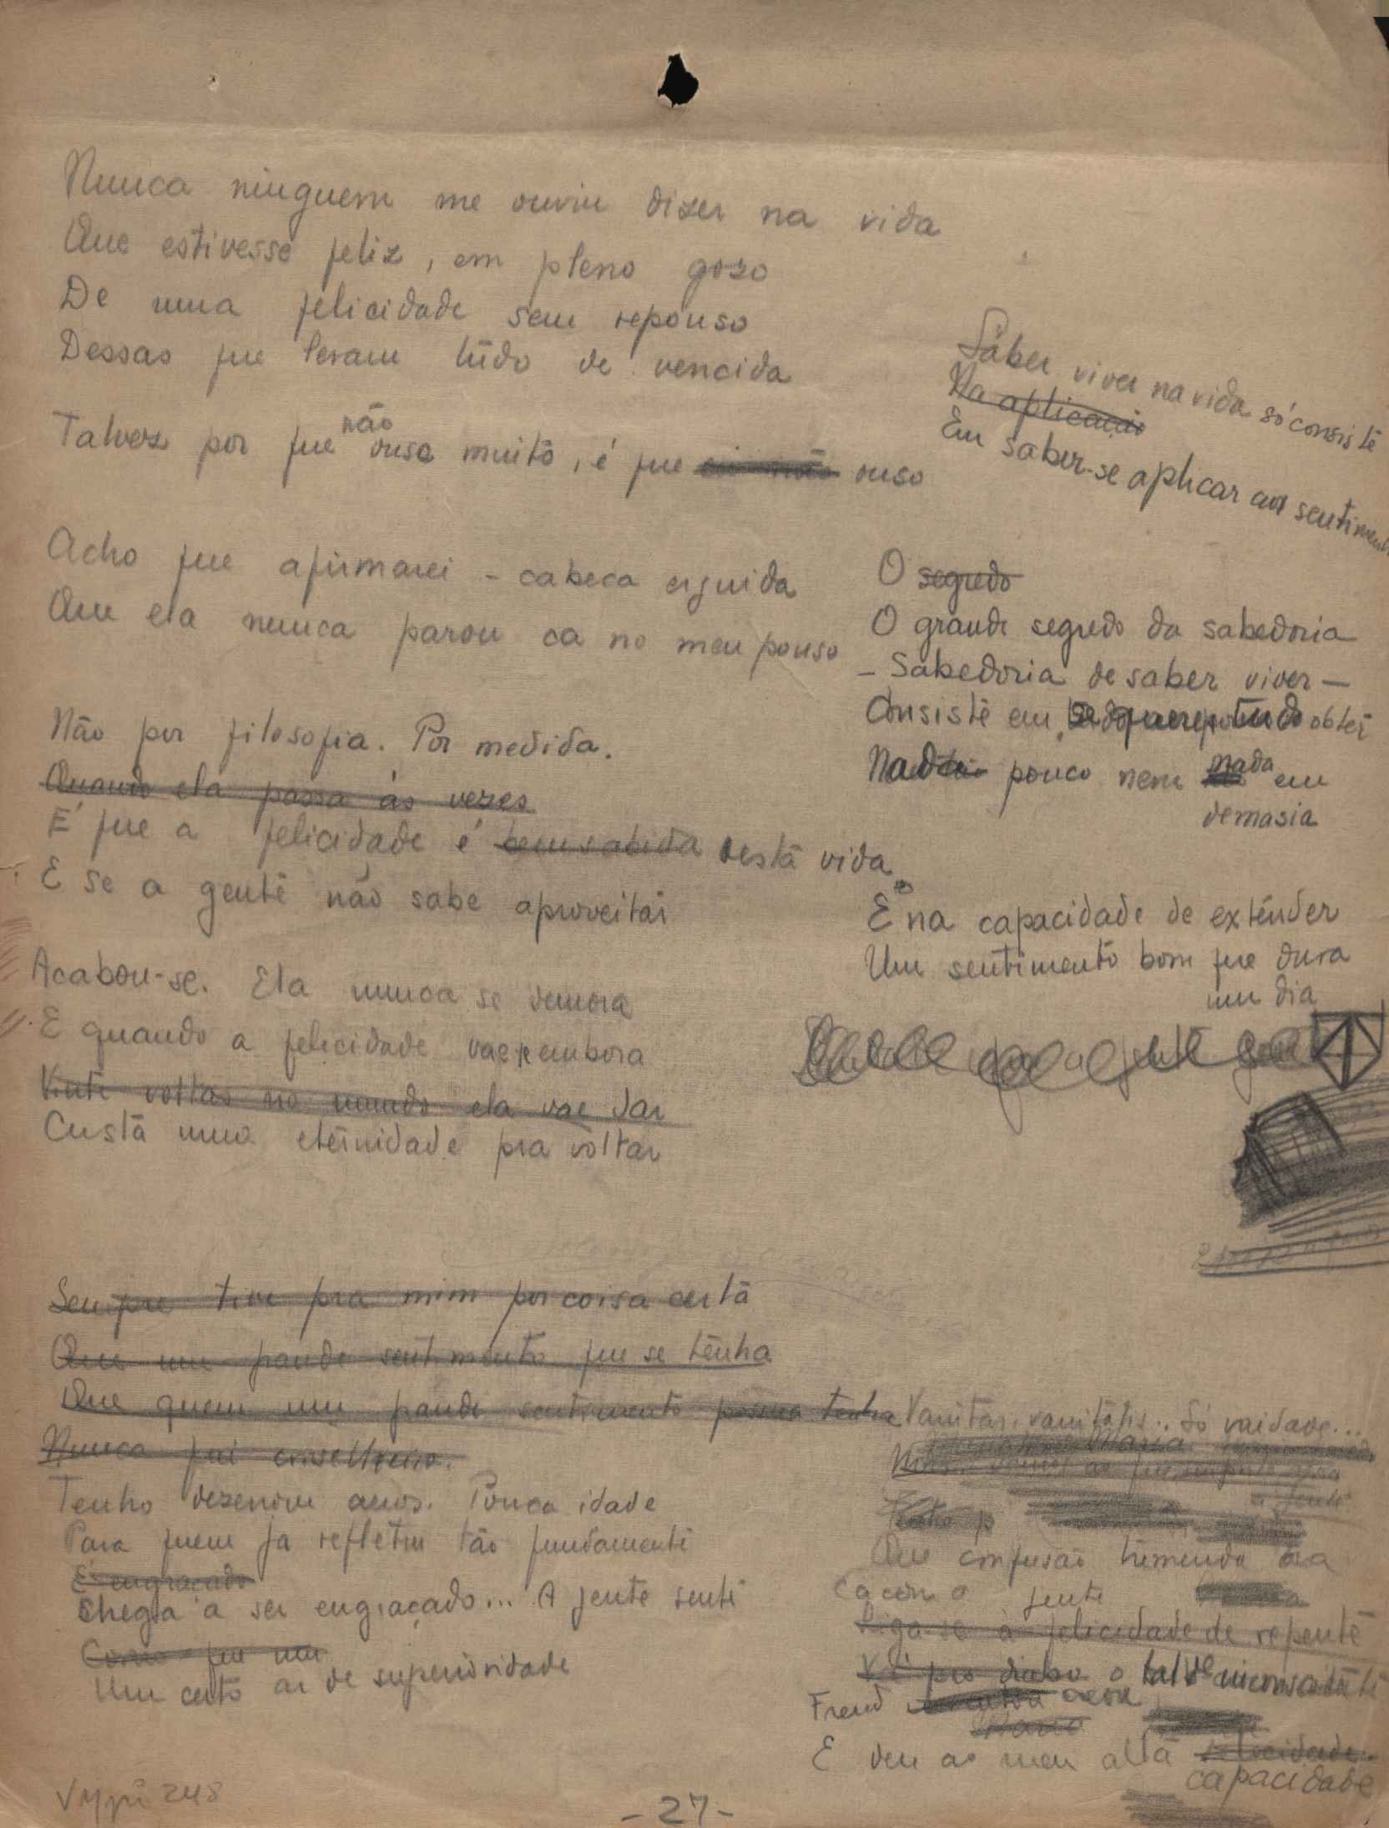 Nunca ninguem me ouviu dizer na vida
Que estivesse feliz, em pleno goso
De uma felicidade sem repouso
Dessas que levam tudo de vencida
Talvez por que não ousa muito, é que ouso
Acho que afirmarei - cabeca erguida
Que ela nunca parou ca no meu pouso
Não por filosofia. Por medida.
Quando ela passa às vezes
E' que a felicidade é bem sabida desta vida
E se a gente não sabe aproveitar
Acabou-se. Ela nunca se demora
E quando a felicidade vae embora
Vinte voltas no mundo ela vae dar
Custa uma eternidade pra voltar
Saber viver na vida só consiste
Na aplicação
Em saber-se aplicar aos sentimen
O segredo
O grande segredo da sabedoria
- Sabedoria de saber viver -
Consiste em obter
pouco nem nada em
demasia
E na capacidade de extender
Um sentimento bom que dura
um dia
Sempre tive pra mim por coisa certa
Que um grande sentimento que se tenha
Que quem um grande sentimento tenha
Nunca fui conselheiro.
Tenho dezenove anos. Pouca idade
Para quem ja refletiu tão fundamente
E' engraçado
Chega a ser engraçado... A gente sente
Como que um
Um certo ar de superioridade
Vanitas, vanitatis.. Só vaidade...
Que confusão tremenda
gente
Liga-se à felicidade de repente
Vá pro diabo o tal de inconsciente
Freud
E deu ao meu alta felicidade..
capacidade
248
- 27 -